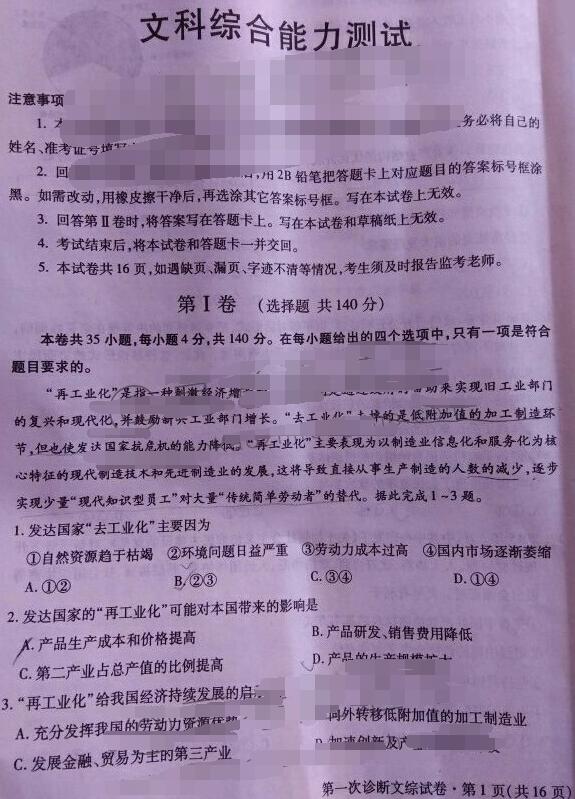 文科综合能力测试
注意事项
1.
务必将自己的
姓名、准考证号填写
2. 回 用2B铅笔把答题卡上对应题目的答案标号框涂
黑。如需改动,用橡皮擦干净后,再选涂其它答案标号框。写在本试卷上无效。
3. 回答第Ⅱ卷时,将答案写在答题卡上。写在本试卷和草稿纸上无效。
4. 考试结束后,将本试卷和答题卡一并交回。
5. 本试卷共16页,如遇缺页、漏页、字迹不清等情况,考生须及时报告监考老师。
第Ⅰ卷 (选择题 共140分)
本卷共35小题,每小题4分,共140分。在每小题给出的四个选项中,只有一项是符合
题目要求的。
“再工业化”是指一种刺激经济增 来实现旧工业部门
的复兴和现代化,并鼓励新兴工业部门增长。“去工业化”去掉的是低附加值的加工制造环
节,但也使发达国家抗危机的能力降低。“再工业化”主要表现为以制造业信息化和服务化为核
心特征的现代制造技术和先进制造业的发展,这将导致直接从事生产制造的人数的减少,逐步
实现少量“现代知识型员工”对大量“传统简单劳动者”的替代。据此完成1~3题。
1. 发达国家“去工业化”主要因为
①自然资源趋于枯竭 ②环境问题日益严重 ③劳动力成本过高 ④国内市场逐渐萎缩
A. ①② B. ②③ C. ③④ D. ①④
2. 发达国家的“再工业化”可能对本国带来的影响是
A. 产品生产成本和价格提高 B. 产品研发、销售费用降低
C. 第二产业占总产值的比例提高 D. 产品的生产规模扩大
3. “再工业化”给我国经济持续发展的启
A. 充分发挥我国的劳动力资源优势 向外转移低附加值的加工制造业
C. 发展金融、贸易为主的第三产业 D. 加速创新及产
第一次诊断文综试卷·第1页(共16页)